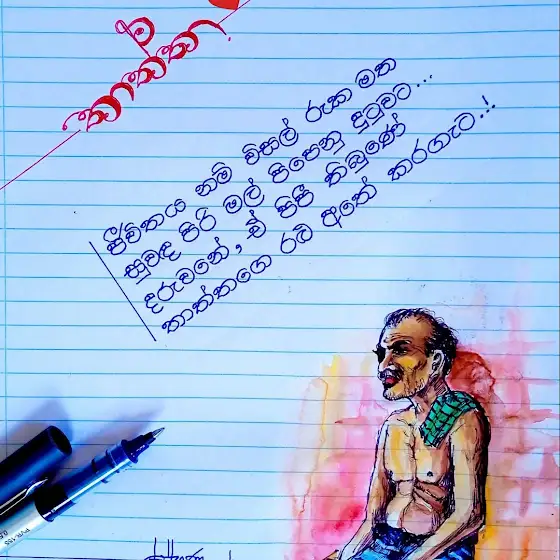 මං
තාත්තා!
ජීවිතය නම් විසල් රුක මත
සුවඳ පිරි මල් පිපෙනු දුටුවට...
දරුවනේ, ඒ පිපී තිබුණේ
තාත්තගෙ රළු අතේ කරගැට..!